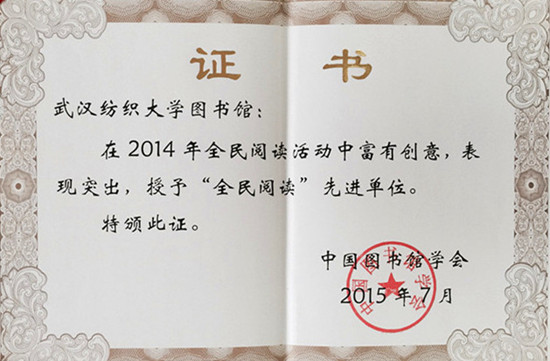 证 书
武汉纺织大学图书馆：
在2014年全民阅读活动中富有创意，表
现突出，授予“全民阅读”先进单位。
特颁此证。
中国图书馆学会
2015年7月
中国图书馆学会